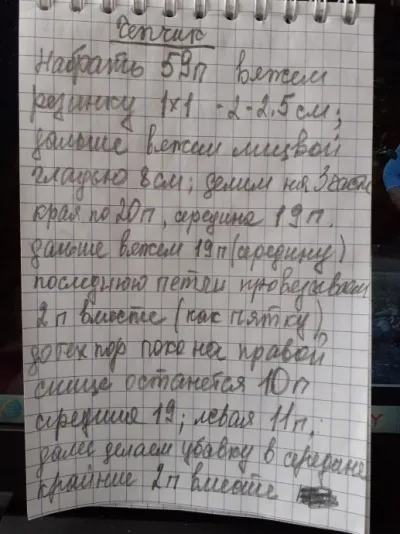 Чепчик
Набрать 59п вяжем
резинку 1х1 - 2-2,5 см;
дальше вяжем лицвой
гладью 8см; делим на 3 части
края по 20п, середина 19п.
дальше вяжем 19п (середину)
последнюю петлю провязываем
2п вместе (как пятку)
до тех пор пока на правой
спице останется 10п
средина 19; левая 11п;
далее делаем убавку в середине
крайние 2п вместе